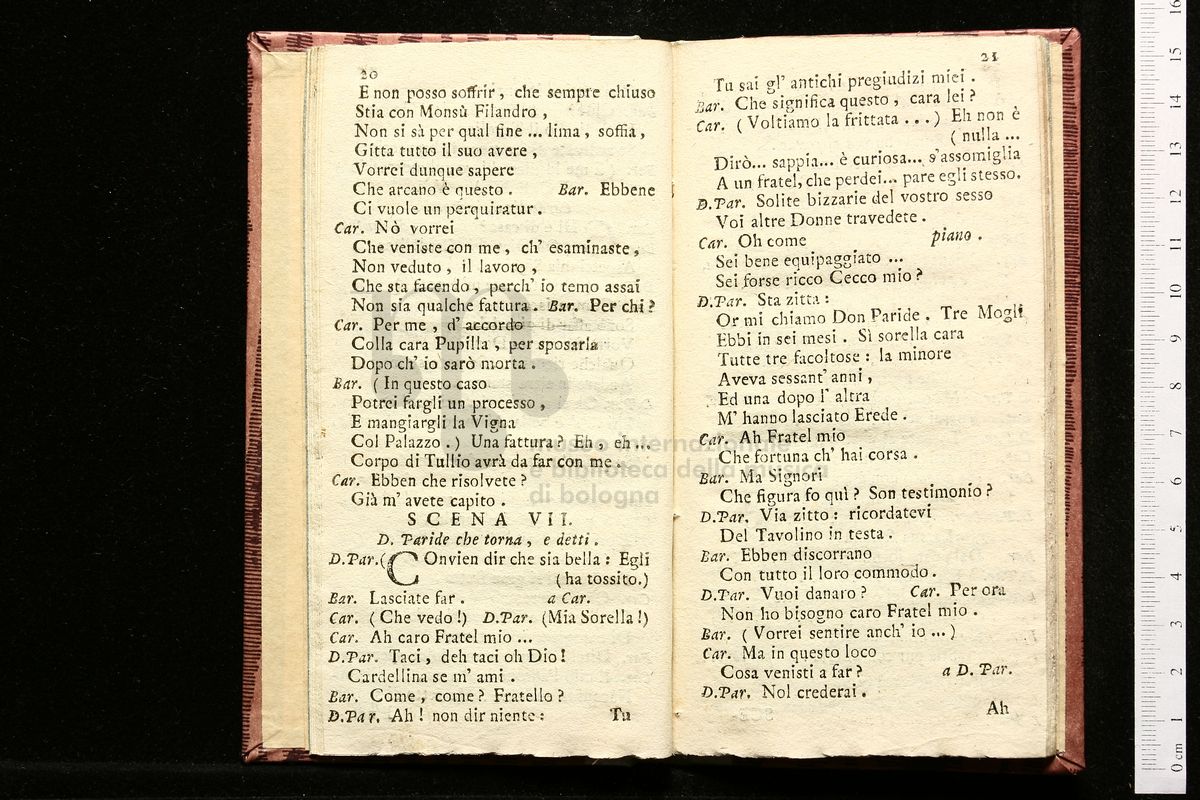 20
E non posso soffrir, che sempre chiuso
Stia con Monsù Filandro,
Non si sà per qual fine ... lima, soffia,
Gitta tutto il suo avere,
Vorrei dunque sapere
Che arcano è questo. Bar. Ebbene
Ci vuole un perquiratur.
Car. Nò vorrei
Che veniste con me, ch' esaminaste,
Non veduto, il lavoro,
Che sta facendo, perch' io temo assai
Non sia qualche fattura. Bar. Per chi?
Car. Per me, d' accordo
Colla cara Pupilla, per sposarla
Dopo ch' io sarò morta.
Bar. (In questo caso
Potrei fargli un processo,
E mangiargli la Vigna
Col Palazzo.) Una fattura? Eh, eh ...
Corpo di Tullio avrà da far con me.
Car. Ebben che risolvete?
Già m' avete capito.
SCENA VII.
D. Paride che torna, e detti.
D.Par. (COnvien dir che sia bella: Egli
(ha tossito.)
Bar. Lasciate far. a Car.
Car. (Che vedo!) D.Par. (Mia Sorella!)
Car. Ah caro Fratel mio ...
D.Par. Taci, deh taci oh Dio!
Cardellina se m' ami.
Bar. Come, come? Fratello?
D.Par. Ah! non dir niente:
Tu
21
Tu sai gl' antichi pregiudizi miei.
Bar. Che significa questo, cara lei?
Car. (Voltiamo la frittata ...) Eh non è
(nulla ...
Dirò... sappia... è curiosa... s'assomiglia
A un fratel, che perdei... pare egli stesso.
D.Par. Solite bizzarie del vostro sesso
Voi altre Donne travedete.
Car. Oh come piano.
Sei bene equipaggiato ...
Sei forse ricco Cecco mio?
D.Par. Sta zitta:
Or mi chiamo Don Paride. Tre Mogli
Ebbi in sei mesi. Sì sorella cara
Tutte tre facoltose: la minore
Aveva sessant' anni,
Ed una dopo l' altra
M' hanno lasciato Erede.
Car. Ah Fratel mio
Che fortuna ch' hai corsa.
Bar. Ma Signori
Che figura fo quì? Son testimonio?
D.Par. Via zitto: ricordatevi
Del Tavolino in testa.
Bar. Ebben discorrano
Con tutto il loro commodo.
D.Par. Vuoi danaro? Car. Per ora
Non ho bisogno caro Fratel mio.
Bar. (Vorrei sentire anch' io ...)
Car. Ma in questo loco
Cosa venisti a far? a D. Par.
D.Par. Nol crederai.
Ah
museo internazionale
e biblioteca della musica
di bologna
0 cm 1 2 3 4 5 6 7 8 9 10 11 12 13 14 15 16